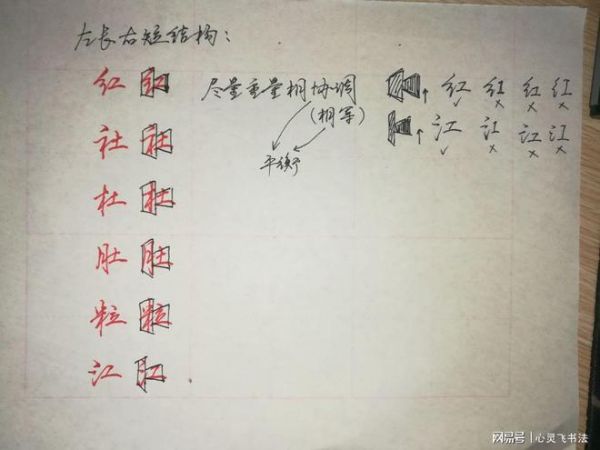 左长右短结构：
红 红 尽量重量相协调 红 红 红 红
(相等)
✓ × × ×
社 社 江 江 江 江
✓ × × ×
平衡
杜 杜
肚 肚
粒 粒
江 江
网易号 | 心灵飞书法